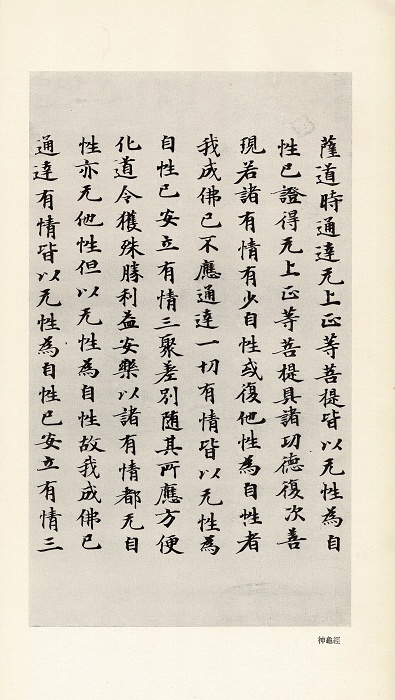 薩道時通達无上正等菩提皆以无性為自
性已證得无上正等菩提具諸功德復次善
現若諸有情有少自性或復他性為自性者
我成佛已不應通達一切有情皆以无性為
自性已安立有情三聚差別随其所應方便
化道令獲殊勝利益安樂以諸有情都无自
性亦无他性但以无性為自性故我成佛已
通達有情皆以无性為自性已安立有情三
神龜經